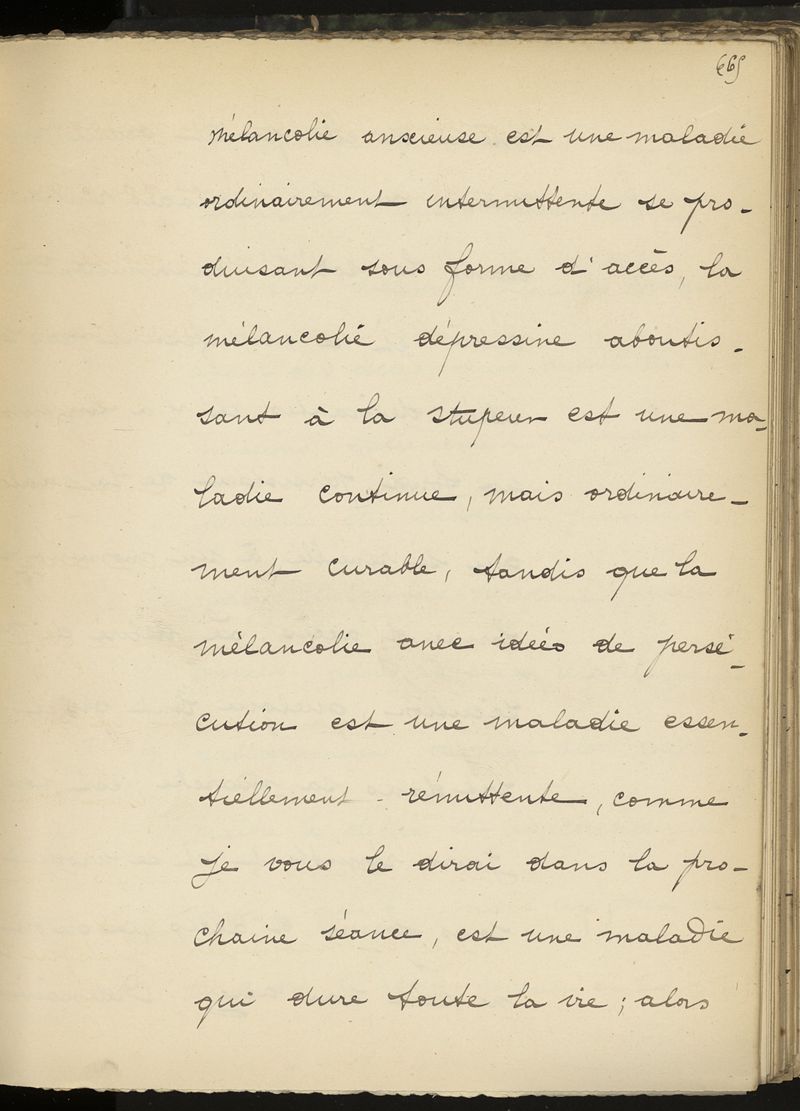 669
mélancolie anxieuse est une maladie
ordinairement intermittente se pro-
duisant sous forme d'accès, la
mélancolie dépressive aboutis-
sant à la stupeur est une ma-
ladie continue, mais ordinaire-
ment curable, tandis que la
mélancolie avec idées de persé-
cution est une maladie essen-
tiellement rémittente, comme
je vous le dirai dans la pro-
chaine séance, est une maladie
qui dure toute la vie ; alors